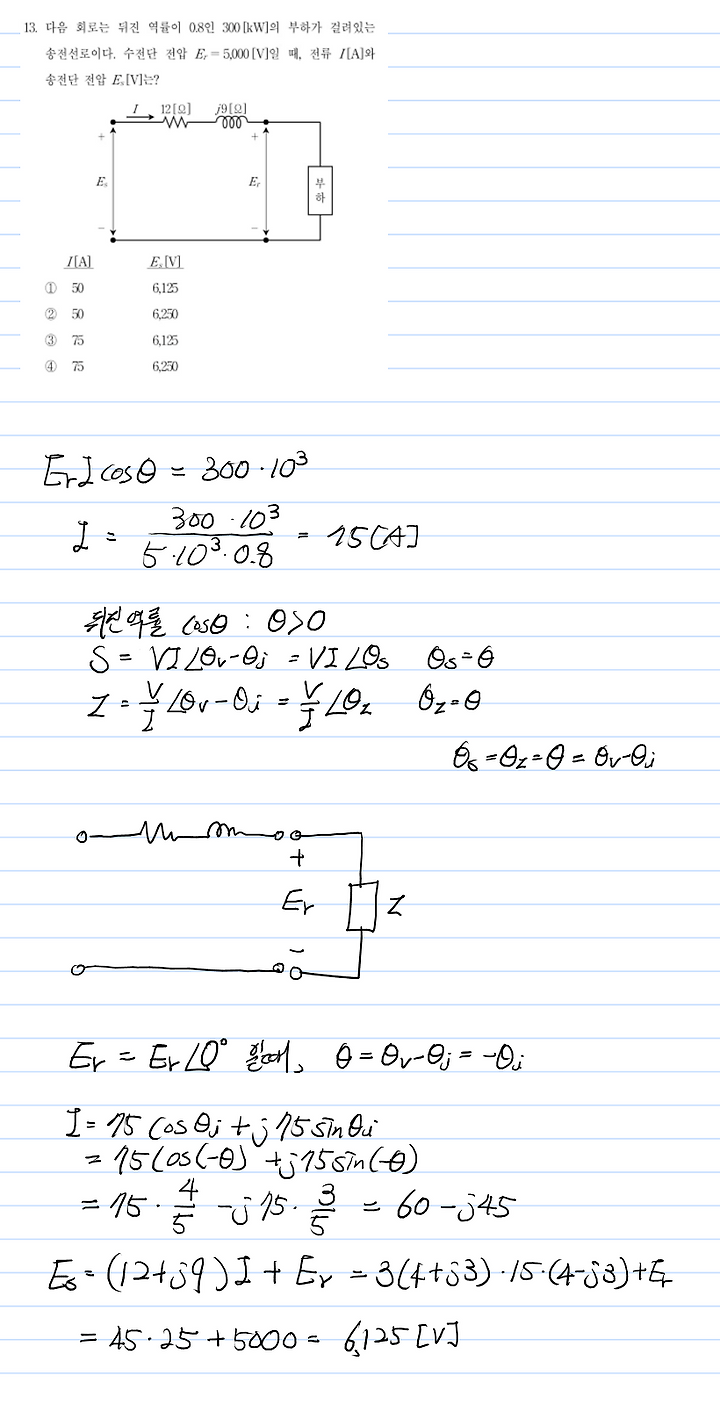 13. 다음 회로는 뒤진 역률이 0.8인 300[kW]의 부하가 걸려있는
송전선로이다. 수전단 전압 Er = 5,000[V]일 때, 전류 I[A]와
송전단 전압 Es[V]는?
I 12[Ω] j9[Ω]
+ +
Es Er 부하
− −
I[A] Es[V]
① 50 6,125
② 50 6,250
③ 75 6,125
④ 75 6,250
ErI cosθ = 300·10³
I = 300·10³ / 5·10³·0.8 = 75[A]
뒤진역률 cosθ : θ>0
S = VI∠θv-θi = VI∠θs θs=θ
Z = V/I ∠θv-θi = V/I ∠θz θz=θ
θs=θz=θ=θv-θi
+
Er Z
−
Er = Er∠0° 일때, θ=θv-θi=-θi
I = 75 cosθi + j75 sinθi
= 75 cos(-θ) + j75 sin(-θ)
= 75·4/5 - j75·3/5 = 60-j45
Es = (12+j9)I + Er = 3(4+j3)·15·(4-j3)+Er
= 45·25+5000 = 6,125[V]